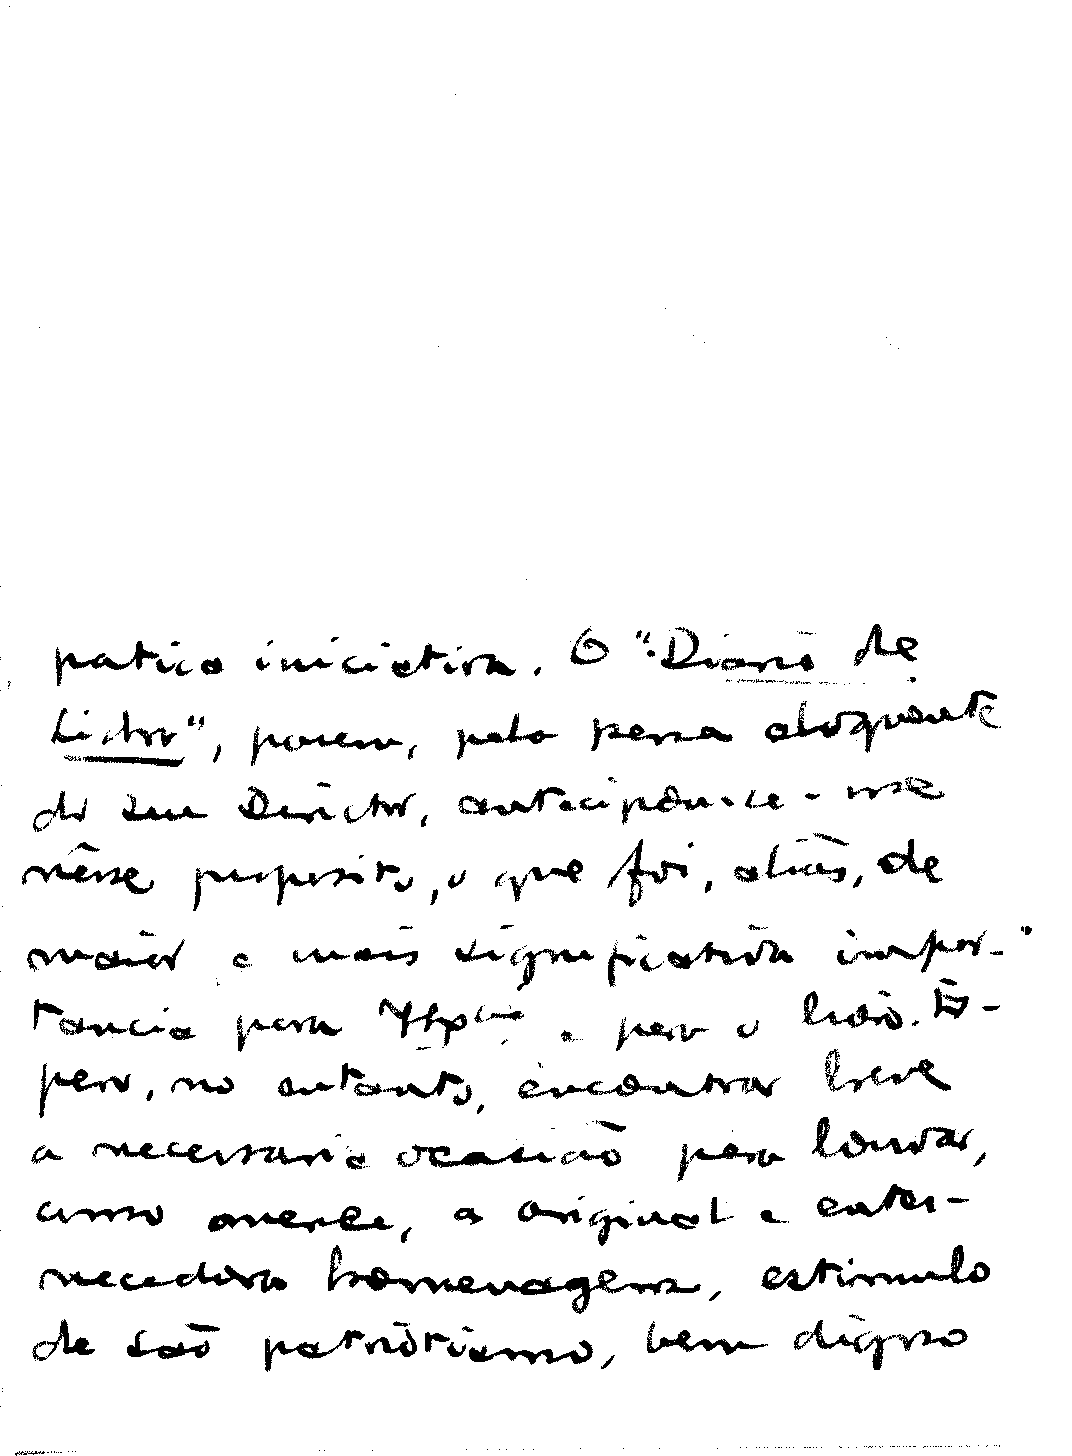 patica iniciativa. O "Diario de
Lisbôa", porem, pela pena eloquente
do seu Director, antecipou-se-me
nêsse proposito, o que foi, aliás, de
maior e mais significativa impor-
tancia para e para o heroi. Es-
pero, no entanto, encontrar breve
a necessaria ocasião para louvar,
como merece, a original e enter-
necedora homenagem, estimulo
de são patriotismo, bem digno